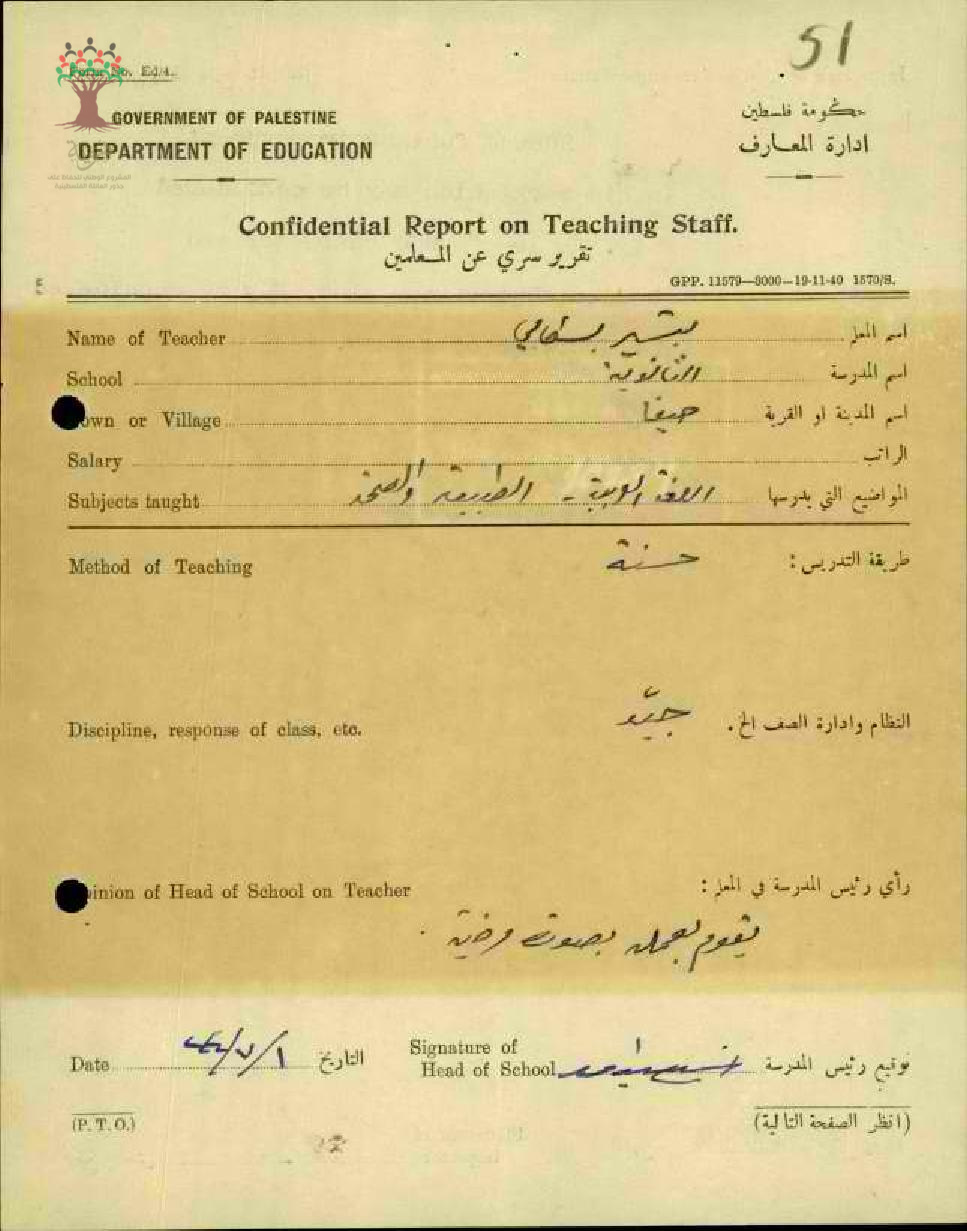 51
Form No. Ed/4.
GOVERNMENT OF PALESTINE
حكومة فلسطين
DEPARTMENT OF EDUCATION
ادارة المعارف
Confidential Report on Teaching Staff.
تقرير سري عن المعلمين
GPP. 11579—3000—19-11-40 1570/S.
Name of Teacher بشير بسطامي اسم المعلم
School الثانوية اسم المدرسة
Town or Village حيفا اسم المدينة او القرية
Salary الراتب
Subjects taught اللغة العربية - الطبيعة والصحة المواضيع التي يدرسها
Method of Teaching حسنة طريقة التدريس :
Discipline, response of class, etc. جيّد النظام وادارة الصف الخ.
Opinion of Head of School on Teacher رأي رئيس المدرسة في المعلم :
يقوم بعمله بصورة مرضية .
Signature of
Date التاريخ Head of School توقيع رئيس المدرسة
(P. T. O.) (انظر الصفحة التالية)